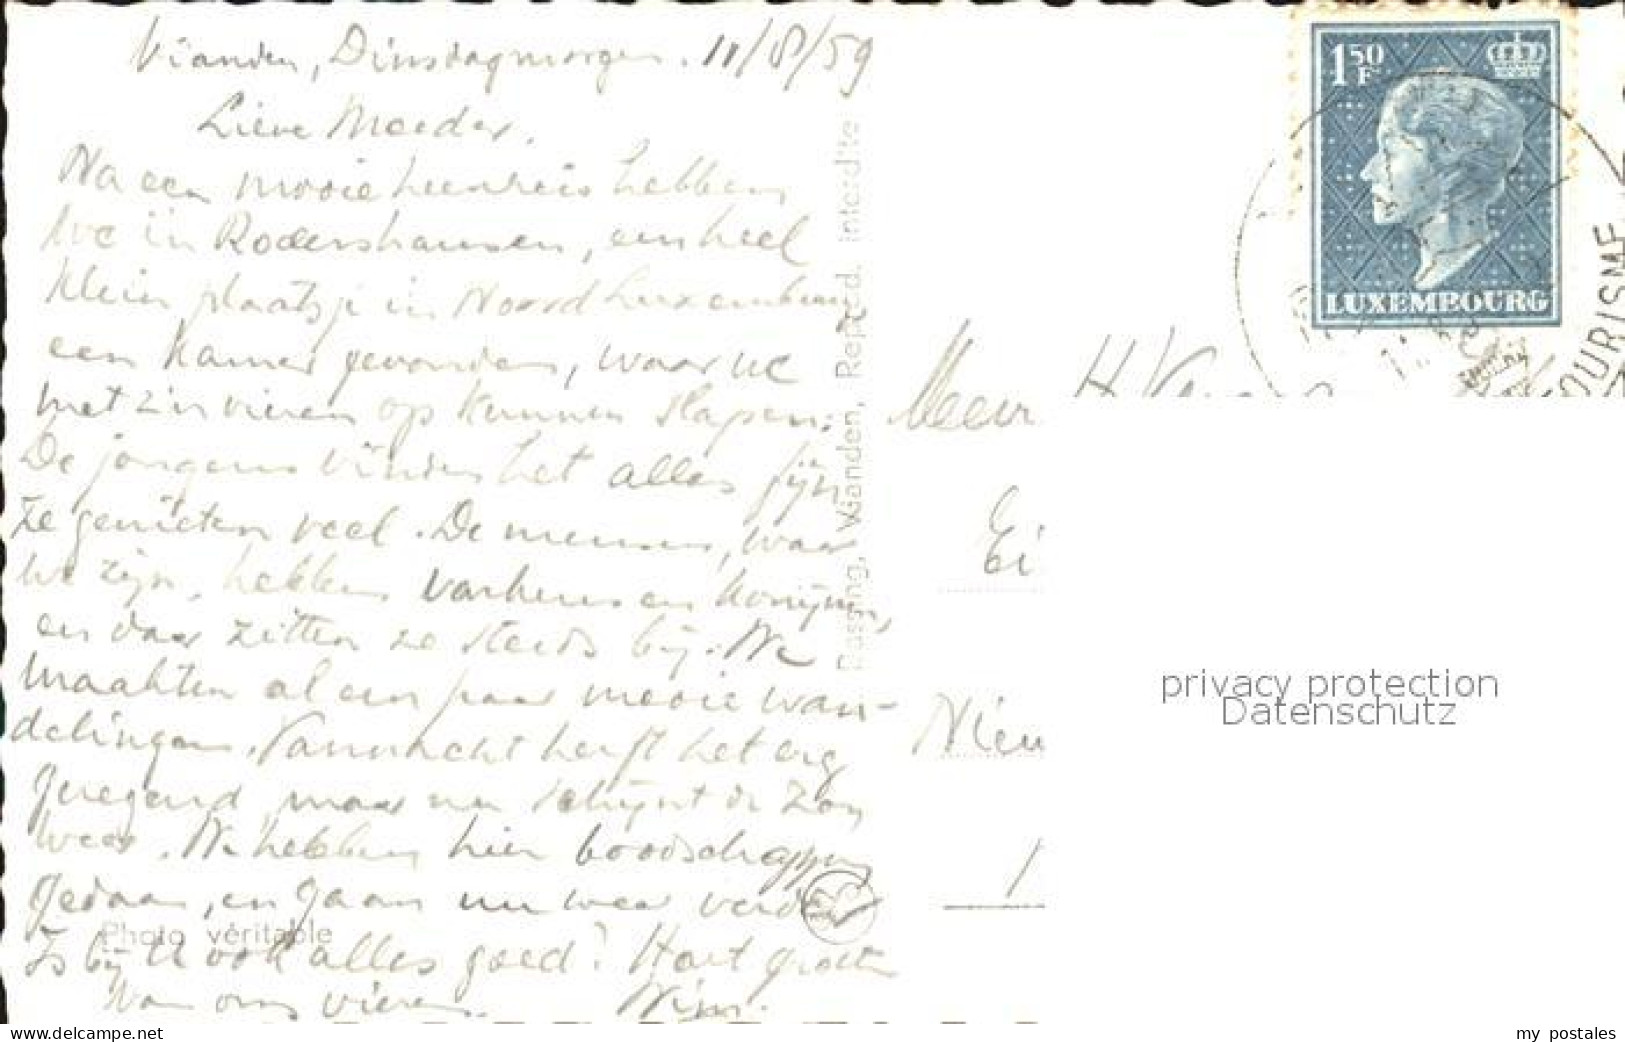 Vianden, Dinsdagmorgen. 11/8/59
Lieve Moeder,
Na een mooie heenreis hebben
we in Rodershausen, een heel
klein plaatsje in Noord Luxemburg
een kamer gevonden, waar we
met z'n vieren op kunnen slapen.
De jongens vinden het alles fijn
ze genieten veel. De mensen, waar
we zijn, hebben varkens en konijnen,
en daar zitten ze steeds bij. We
maakten al een paar mooie wan-
delingen. Vannacht heeft het erg
geregend, maar nu schijnt de zon
weer. We hebben hier boodschappen
gedaan, en gaan nu weer verder
Is bij U ook alles goed? Hart. groeten
van ons vieren. Wim.
Photo véritable
Russing, Vianden, Reprod. interdite
1 50 F
LUXEMBOURG
TOURISME
H
Ei
Nieu
privacy protection
Datenschutz
www.delcampe.net
my_postales